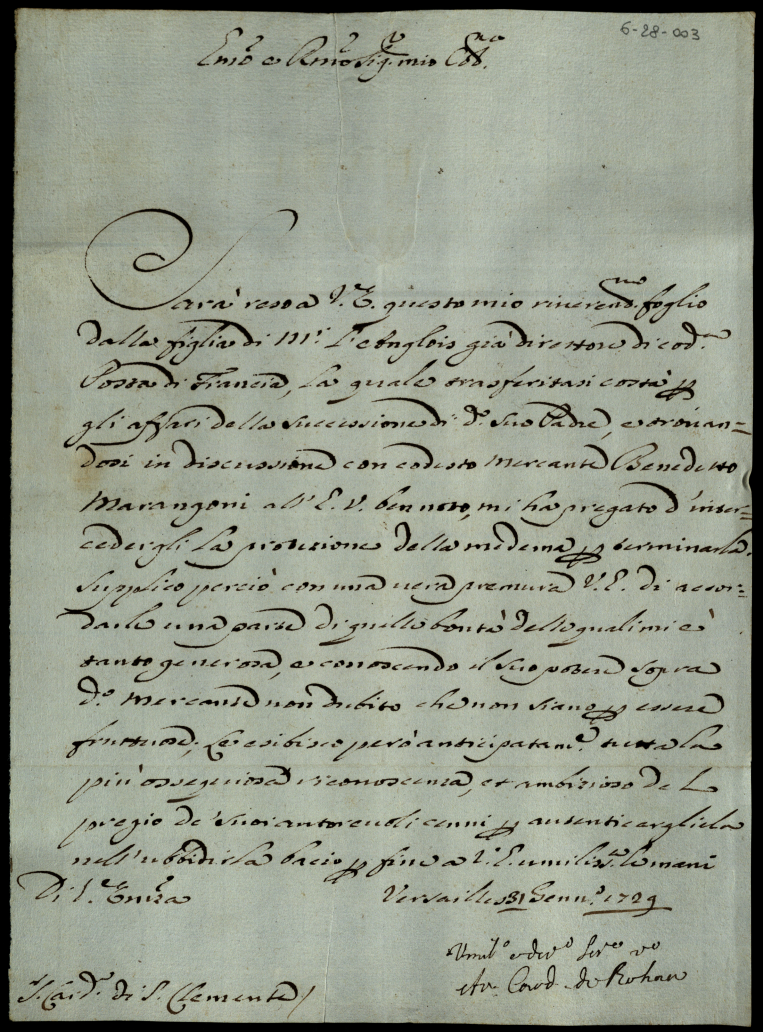 6-28-003
Em.o e Rmo Sig.r mio Oss.mo
Sarà resa a V. E. questo mio riveren.mo foglio
dalla figlia di Mr. L'Anglois già direttore di cod.a
Posta di Francia, la quale trasferitasi costà p
gli affari della successione di d.o suo Padre, e trovan=
dosi in discussione con codesto Mercante Benedetto
Marangoni all' E. V. ben noto, mi ha pregato d'inter=
cedergli la protezione della medema p terminarla.
Supplico perciò con una vera premura V. E. di accor=
darle una parte di quelle bontà delle quali mi è
tanto generosa, e conoscendo il suo potere sopra
d.o Mercante non dubito che non siano p essere
fruttuose; Le esibisco però anticipatam.e tutta la
più ossequiosa riconoscenza, et ambizioso del
pregio de' suoi autorevoli cenni p autenticargliela
nell'ubbidirla bacio p fine a V. E. umiliss.te le mani
Di V. Emza Versailles 31 Genn.o 1729
Umil.o e dev.o Ser.re v.o
Ar. Card. de Rohan
S. Card. di S. Clemente